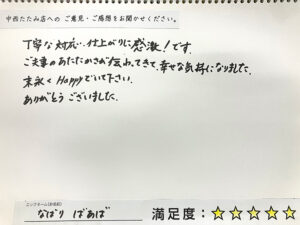 中西たたみ店への ご意見・ご感想をお聞かせください。
丁寧な対応・仕上がりに感激！です。
ご夫妻のあたたかさが伝わってきて、幸せな気持になりました。
末永くHappyでいて下さい。
ありがとうございました。
ニックネーム(お名前)
なばり ばあば
満足度：☆☆☆☆☆